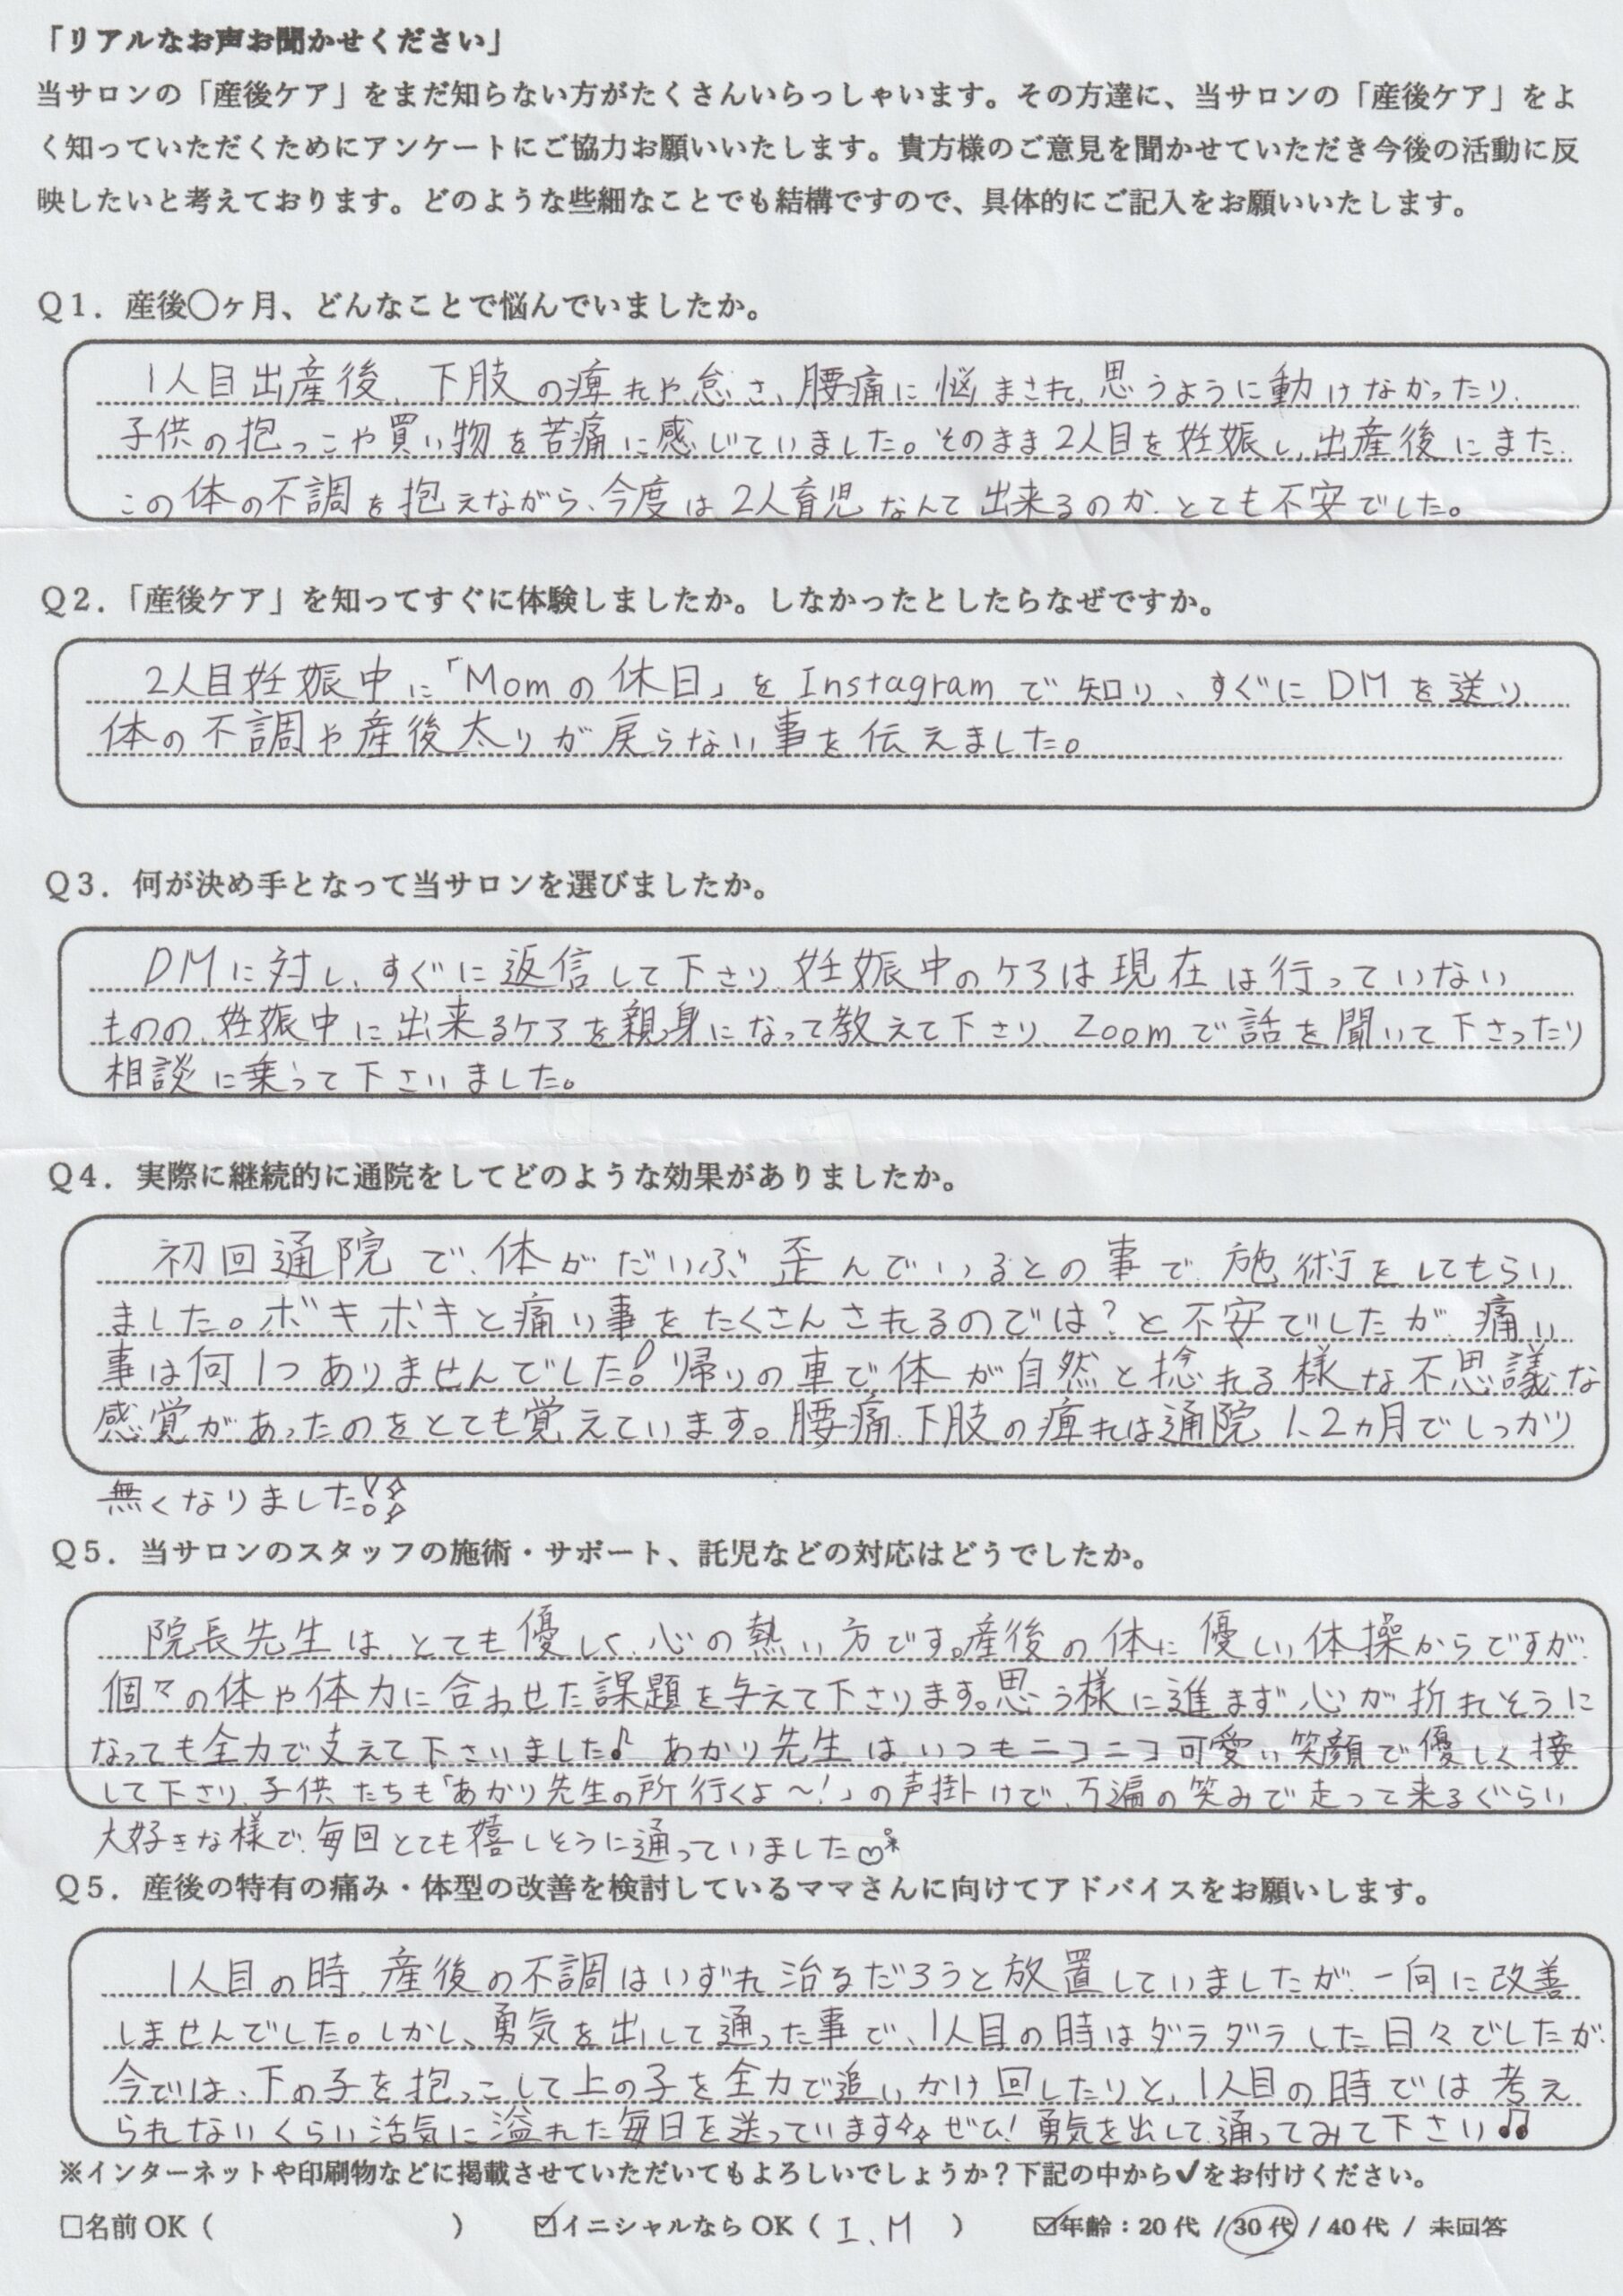 「リアルなお声お聞かせください」
当サロンの「産後ケア」をまだ知らない方がたくさんいらっしゃいます。その方達に、当サロンの「産後ケア」をよ
く知っていただくためにアンケートにご協力お願いいたします。貴方様のご意見を聞かせていただき今後の活動に反
映したいと考えております。どのような些細なことでも結構ですので、具体的にご記入をお願いいたします。
Q1. 産後〇ヶ月、どんなことで悩んでいましたか。
1人目出産後、下肢の痺れや怠さ、腰痛に悩まされ、思うように動けなかったり、
子供の抱っこや買い物を苦痛に感じていました。そのまま2人目を妊娠し、出産後にまた、
この体の不調を抱えながら、今度は2人育児なんて出来るのか、とても不安でした。
Q2.「産後ケア」を知ってすぐに体験しましたか。しなかったとしたらなぜですか。
2人目妊娠中に「Momの休日」をInstagramで知り、すぐにDMを送り、
体の不調や産後太りが戻らない事を伝えました。
Q3. 何が決め手となって当サロンを選びましたか。
DMに対し、すぐに返信して下さり、妊娠中のケアは現在は行っていない
ものの、妊娠中に出来るケアを親身になって教えて下さり、Zoomで話を聞いて下さったり
相談に乗って下さいました。
Q4. 実際に継続的に通院をしてどのような効果がありましたか。
初回通院で、体がだいぶ歪んでいるとの事で、施術をしてもらい
ました。ボキボキと痛い事をたくさんされるのでは?と不安でしたが、痛い
事は何1つありませんでした!帰りの車で体が自然と捻れる様な不思議な
感覚があったのをとても覚えています。腰痛、下肢の痺れは通院1、2ヵ月でしっかり
無くなりました!✧
Q5. 当サロンのスタッフの施術・サポート、託児などの対応はどうでしたか。
院長先生は、とても優しく、心の熱い方です。産後の体に優しい体操からですが、
個々の体や体力に合わせた課題を与えて下さります。思う様に進まず心が折れそうに
なっても全力で支えて下さいました♪ あかり先生はいつもニコニコ可愛い笑顔で優しく接
して下さり、子供たちも「あかり先生の所行くよ〜!」の声掛けで、万遍の笑みで走って来るぐらい
大好きな様で、毎回とても嬉しそうに通っていました♡
Q5. 産後の特有の痛み・体型の改善を検討しているママさんに向けてアドバイスをお願いします。
1人目の時、産後の不調はいずれ治るだろうと放置していましたが、一向に改善
しませんでした。しかし、勇気を出して通った事で、1人目の時はダラダラした日々でしたが、
今では、下の子を抱っこして上の子を全力で追いかけ回したりと、1人目の時では考え
られないくらい活気に溢れた毎日を送っています✧ ぜひ!勇気を出して、通ってみて下さい♫
※インターネットや印刷物などに掲載させていただいてもよろしいでしょうか?下記の中から✓をお付けください。
□名前 OK ( ) ☑イニシャルなら OK ( I.M ) ☑年齢:20代 / 30代 / 40代 / 未回答